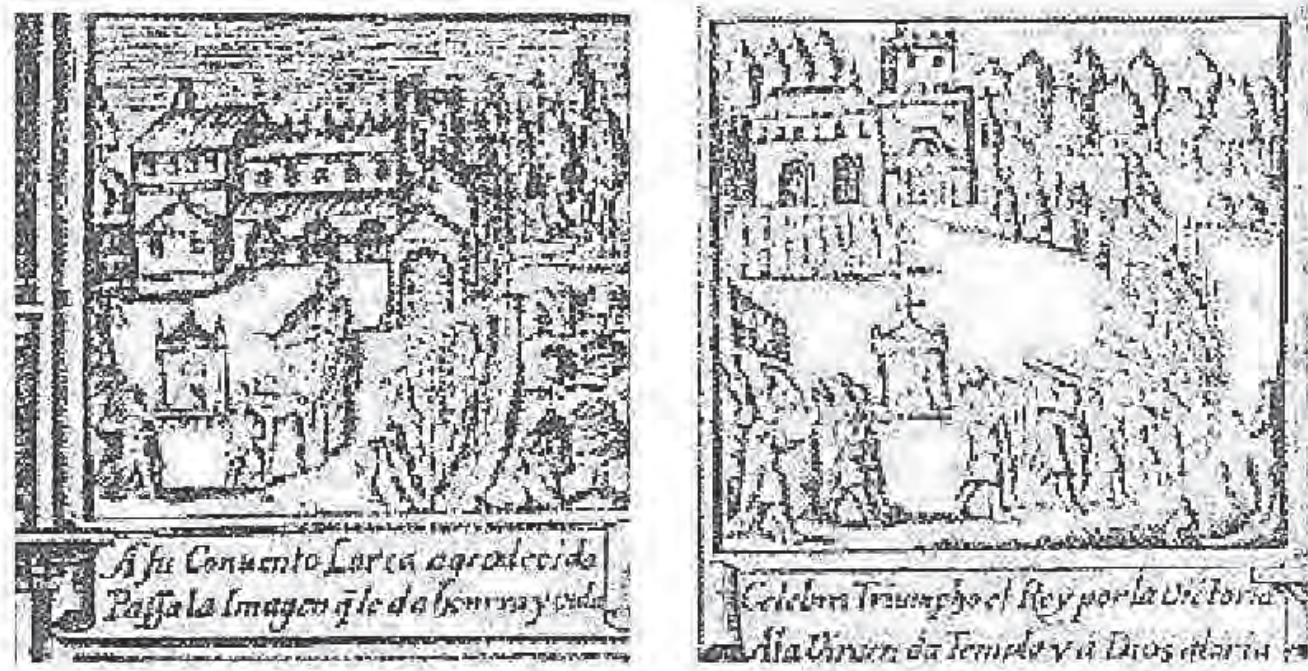 A su Conuento Lorca agradecida
Passa la Imagen q̃ le da honrra y vida
Celebra Triumpho el Rey por la Victoria
A la Virgen da Temple y a Dios gloria